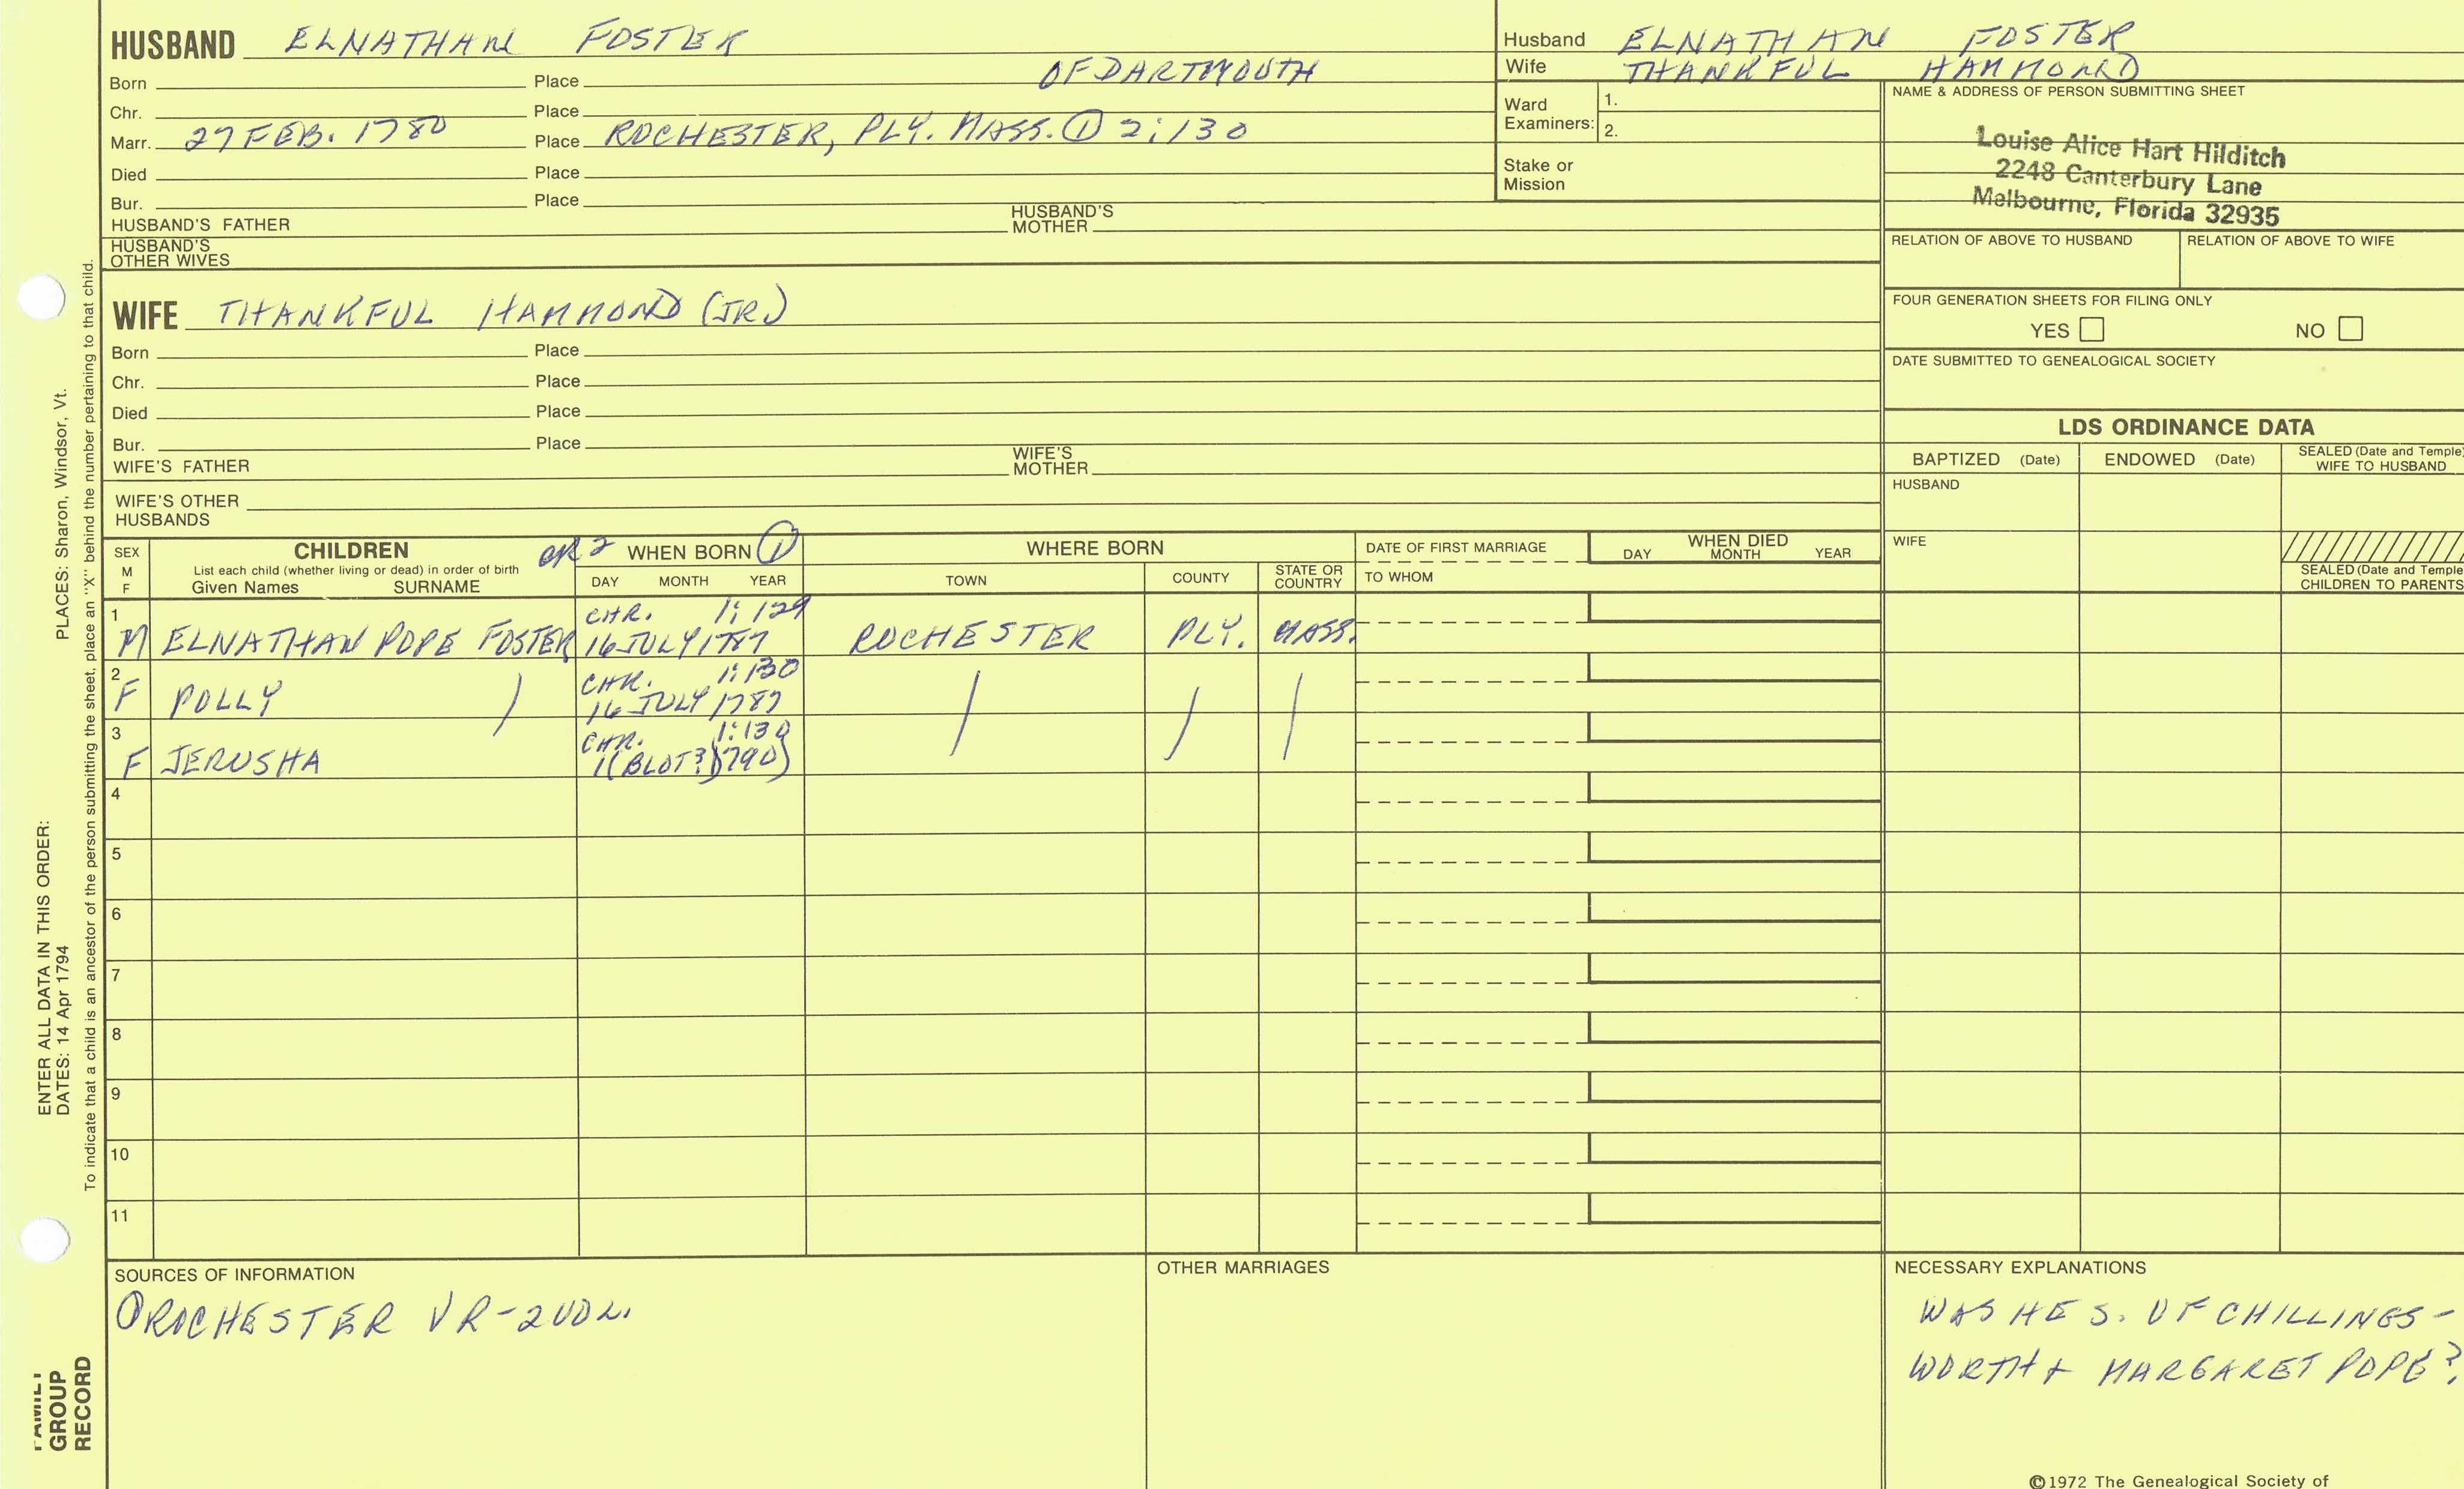 HUSBAND ELNATHAN FOSTER
Born Place OF DARTMOUTH
Chr. Place
Marr. 27 FEB. 1780 Place ROCHESTER, PLY. MASS. ① 2:130
Died Place
Bur. Place
HUSBAND'S FATHER HUSBAND'S MOTHER
HUSBAND'S OTHER WIVES
Husband ELNATHAN FOSTER
Wife THANKFUL HAMMOND
Ward Examiners: 1.
2.
Stake or Mission
NAME & ADDRESS OF PERSON SUBMITTING SHEET
Louise Alice Hart Hilditch
2248 Canterbury Lane
Melbourne, Florida 32935
RELATION OF ABOVE TO HUSBAND RELATION OF ABOVE TO WIFE
FOUR GENERATION SHEETS FOR FILING ONLY
YES NO
DATE SUBMITTED TO GENEALOGICAL SOCIETY
WIFE THANKFUL HAMMOND (JR)
Born Place
Chr. Place
Died Place
Bur. Place
WIFE'S FATHER WIFE'S MOTHER
WIFE'S OTHER HUSBANDS
LDS ORDINANCE DATA
BAPTIZED (Date) ENDOWED (Date) SEALED (Date and Temple) WIFE TO HUSBAND
HUSBAND
WIFE
SEALED (Date and Temple CHILDREN TO PARENTS
SEX M F
CHILDREN
List each child (whether living or dead) in order of birth
Given Names SURNAME
WHEN BORN ①
DAY MONTH YEAR
WHERE BORN
TOWN COUNTY STATE OR COUNTRY
DATE OF FIRST MARRIAGE
TO WHOM
WHEN DIED
DAY MONTH YEAR
1 CHR. 1:129
M ELNATHAN POPE FOSTER 16 JULY 1787 ROCHESTER PLY. MASS.
2 CHR. 1:130
F POLLY ) 16 JULY 1787 / / /
3 CHR. 1:130
F JERUSHA 1(BLOT?)1790)
4
5
6
7
8
9
10
11
SOURCES OF INFORMATION
① ROCHESTER VR-2VOL.
OTHER MARRIAGES
NECESSARY EXPLANATIONS
WAS HE S. OF CHILLINGS-
WORTH + MARGARET POPE?
©1972 The Genealogical Society of
ENTER ALL DATA IN THIS ORDER:
DATES: 14 Apr 1794 PLACES: Sharon, Windsor, Vt.
To indicate that a child is an ancestor of the person submitting the sheet, place an "X" behind the number pertaining to that child.
FAMILY
GROUP
RECORD